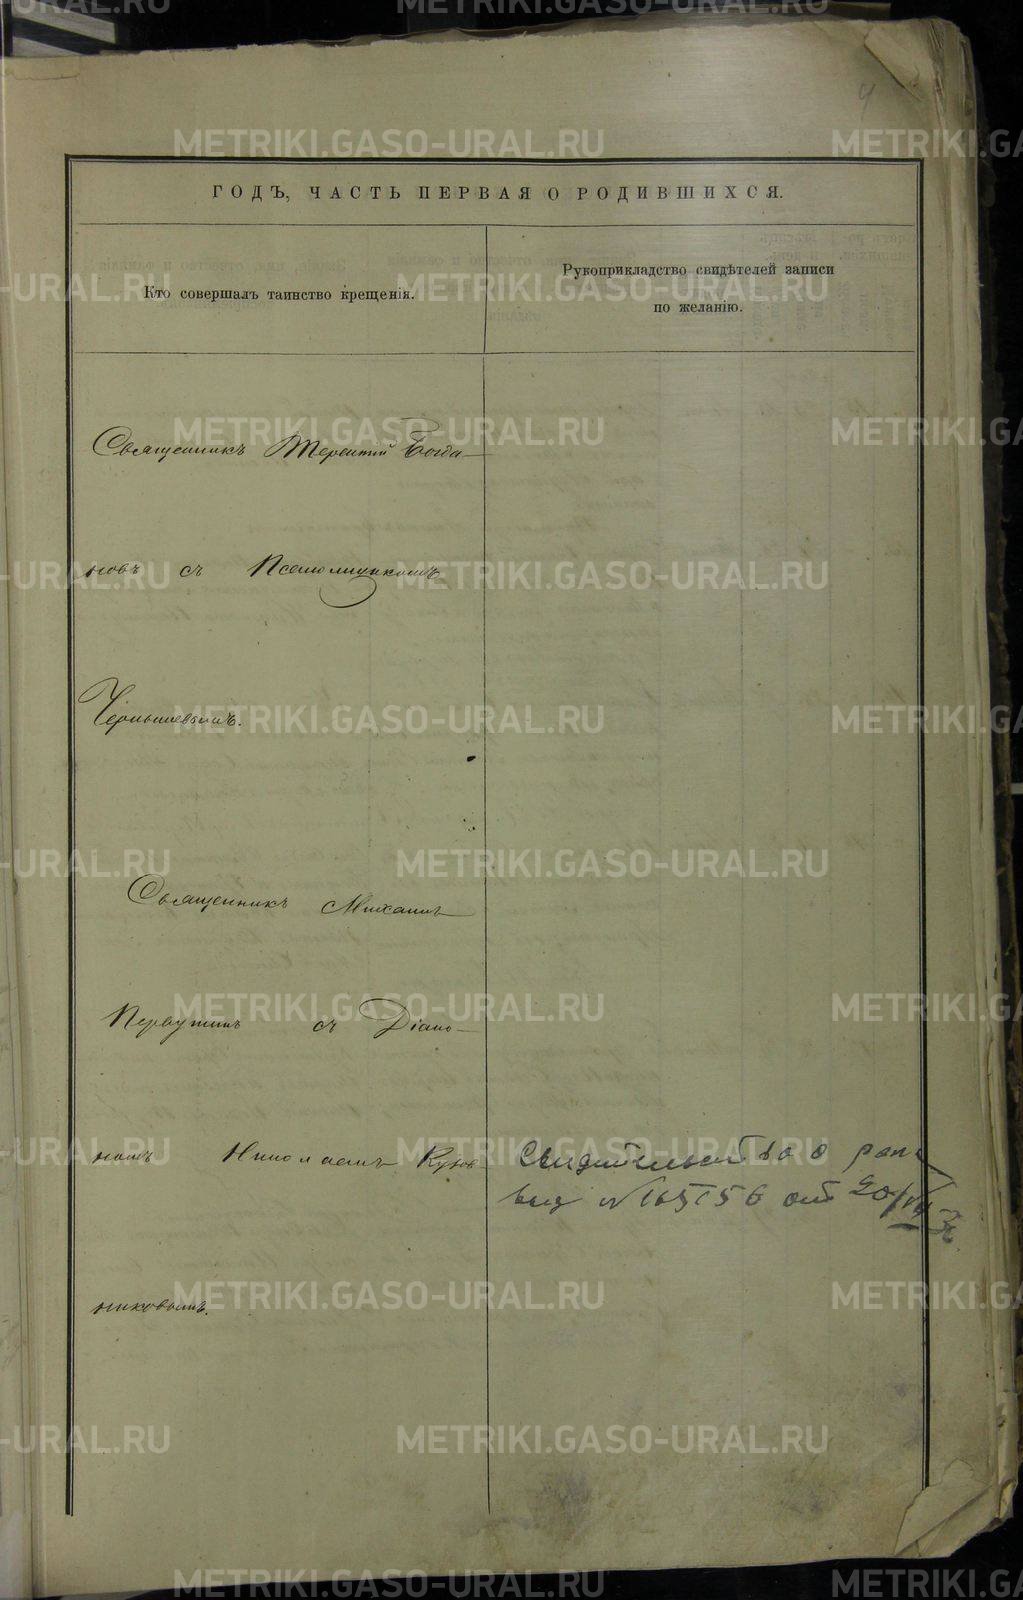 4
ГОДЪ, ЧАСТЬ ПЕРВАЯ О РОДИВШИХСЯ.
Кто совершалъ таинство крещенія.
Рукоприкладство свидѣтелей записи
по желанію.
Священникъ Терентій Богда-
новъ съ Псаломщикомъ
Чернышевымъ.
Священникъ Михаилъ
Первушинъ съ Діако-
номъ Николаемъ Кузов
никовымъ.
Свидительство о
выд № 165156 от 20/VII
METRIKI.GASO-URAL.RU